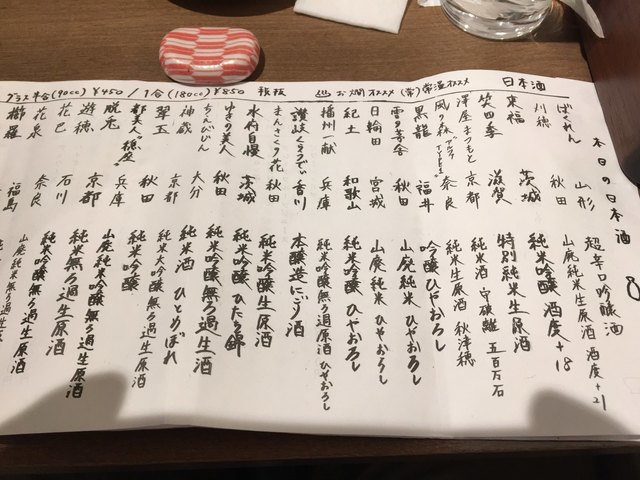 日本酒
グラス半合(90cc)¥450/1合(180cc)¥850 税抜
お燗オススメ (常)常温オススメ
本日の日本酒
ばくれん 山形 超辛口吟醸酒 酒度+21
刈穂 秋田 山廃純米生原酒
来福 茨城 純米吟醸 酒度+18
笑四季 滋賀 特別純米生原酒
澤屋まつもと 京都 純米酒 守破離 五百万石
風の森 奈良 純米生原酒 秋津穂
黒龍 福井 吟醸 ひやおろし
雪の茅舎 秋田 山廃純米 ひやおろし
日輪田 宮城 山廃純米 ひやおろし
紀土 和歌山 純米吟醸 ひやおろし
播州一献 兵庫 純米吟醸無ろ過原酒 ひやおろし
讃岐くらうでぃ 香川 本醸造にごり酒
まんさくの花 秋田 純米吟醸生原酒
水府自慢 茨城 純米吟醸 ひたち錦
ゆきの美人 秋田 純米吟醸無ろ過生酒
ちえびじん 大分 純米酒 ひとめぼれ
神蔵 京都 純米大吟醸 無ろ過生原酒
翠玉 秋田 純米吟醸
都美人 兵庫 山廃純米吟醸 無ろ過生原酒
脱兎
遊穂 石川
花巴 奈良
花泉 福島
櫛羅
純米吟醸無ろ過生原酒
純米無ろ過生原酒